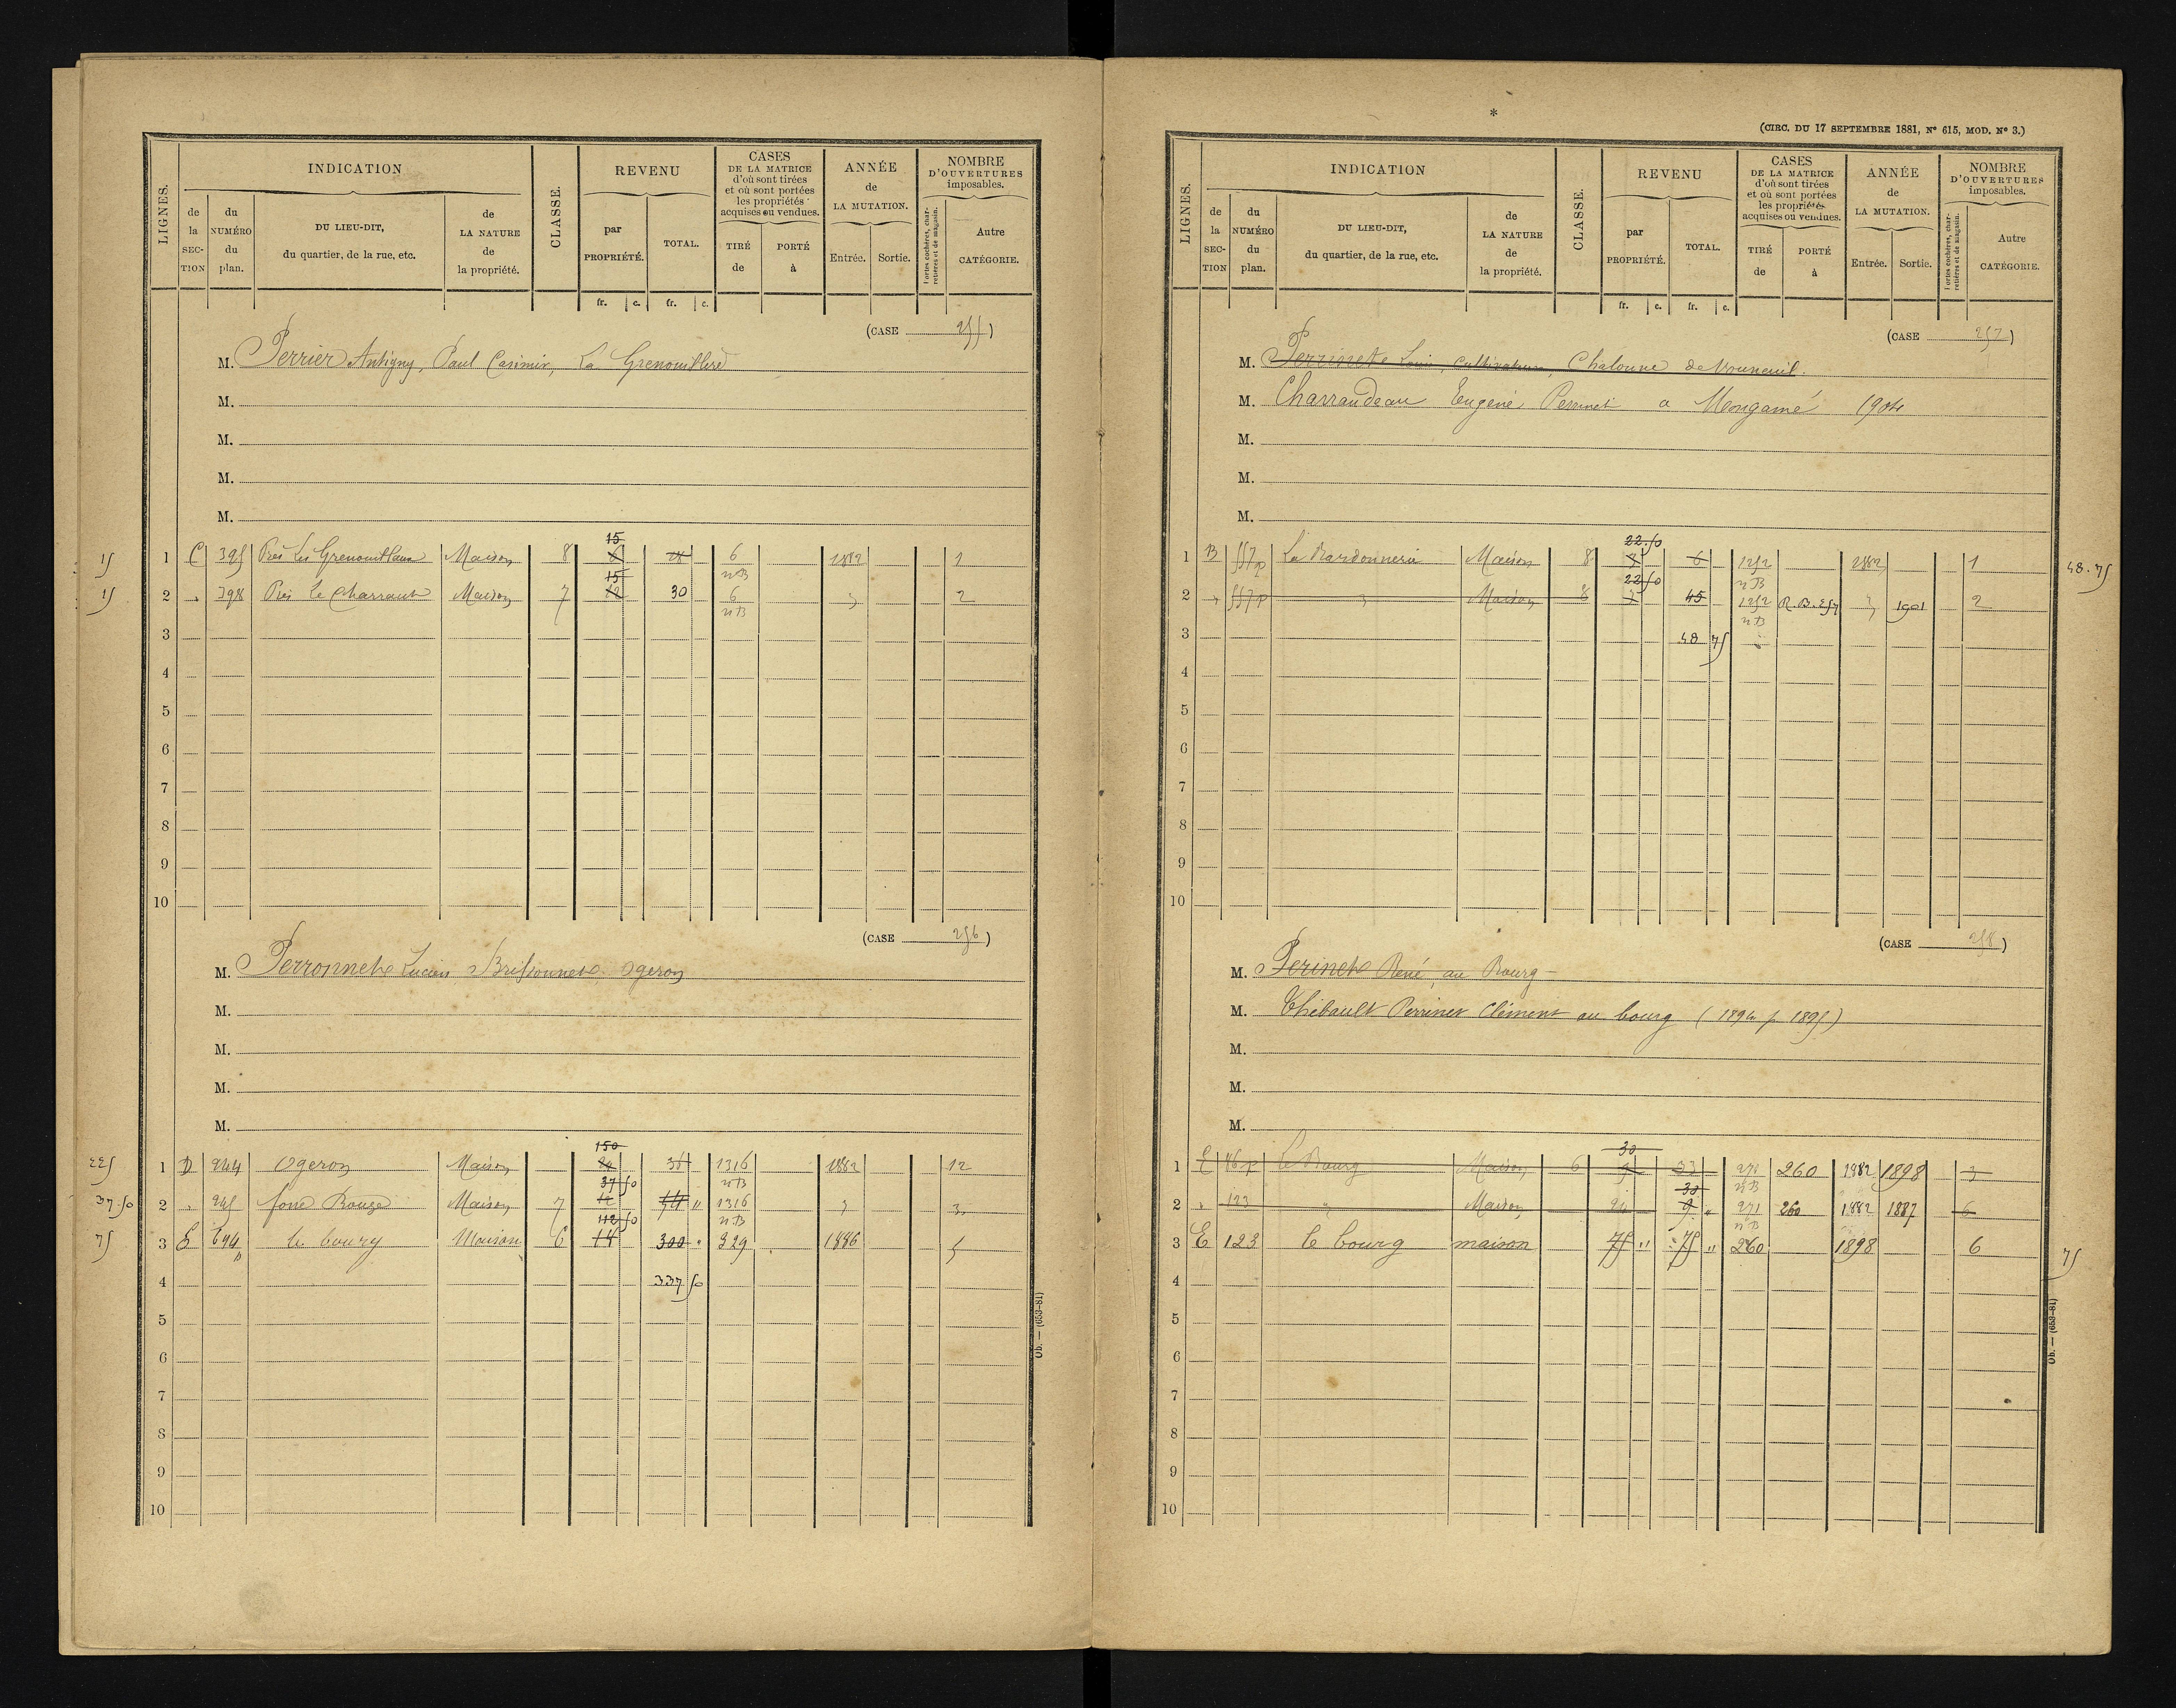 INDICATION
REVENU
CASES DE LA MATRICE d'où sont tirées et où sont portées les propriétés acquises ou vendues.
ANNÉE de LA MUTATION.
NOMBRE D'OUVERTURES imposables.
LIGNES.
de la SECTION
du NUMÉRO du plan.
DU LIEU-DIT, du quartier, de la rue, etc.
de LA NATURE de la propriété.
CLASSE.
par PROPRIÉTÉ.
TOTAL.
TIRÉ de
PORTÉ à
Entrée.
Sortie.
Portes cochères, charretières et de magasin.
Autre CATÉGORIE.
fr. c. fr. c.
(CASE 255)
M. Perrier Antigny, Paul Casimir, La Grenouillere
M.
M.
M.
M.
15
15 1 C 395 Près Les Grenouillaux Maison 8 6 1882 1
nB
15
15 2 " 398 Près le Charraut Maison 7 12 30 6 " 2
nB
3
4
5
6
7
8
9
10
(CASE 256)
M. Perronnet Lucien Brissonnet Ogeron
M.
M.
M.
M.
150
225 1 D 244 Ogeron Maison 24 36 1316 1882 12
37 50 nB
37.50 2 " 245 Maison 7 54 " 1316 " 3
112 50 nB
75 3 E 694 le bourg Maison 6 14 300 " 329 1886 5
p
4 337 50
5
6
7
8
9
10
Ob. — (653-81)
*
(CIRC. DU 17 SEPTEMBRE 1881, N° 615, MOD. N° 3.)
INDICATION
REVENU
CASES DE LA MATRICE d'où sont tirées et où sont portées les propriétés acquises ou vendues.
ANNÉE de LA MUTATION.
NOMBRE D'OUVERTURES imposables.
LIGNES.
de la SECTION
du NUMÉRO du plan.
DU LIEU-DIT, du quartier, de la rue, etc.
de LA NATURE de la propriété.
CLASSE.
par PROPRIÉTÉ.
TOTAL.
TIRÉ de
PORTÉ à
Entrée.
Sortie.
Portes cochères, charretières et de magasin.
Autre CATÉGORIE.
fr. c. fr. c.
(CASE 257)
M. Perrinet Louis, cultivateur, Chaloune de Vouneuil.
M. Charraudeau Eugène Perrinet a Mongamé 1904
M.
M.
M.
22.50
1 B 557 p La Bardonnerie Maison 8 3 6 1252 1882 1 48.75
22 50 nB
2 " 557 p " Maison 8 3 45 1252 R.B.257 " 1901 2
nB
3 48 75
4
5
6
7
8
9
10
(CASE 258)
M. Perinet René, au Bourg
M. Thibault Perrinet Clément au bourg (1894 p 1895)
M.
M.
M.
30
1 E 46 p Le Bourg Maison 6 9 33 271 260 1882 1898 3
30 nB
2 " 123 " Maison 24 9 " 271 260 1882 1887 6
nB
3 E 123 le bourg maison 75 " 75 " 260 1898 6 75
4
5
6
7
8
9
10
Ob. — (653-81)